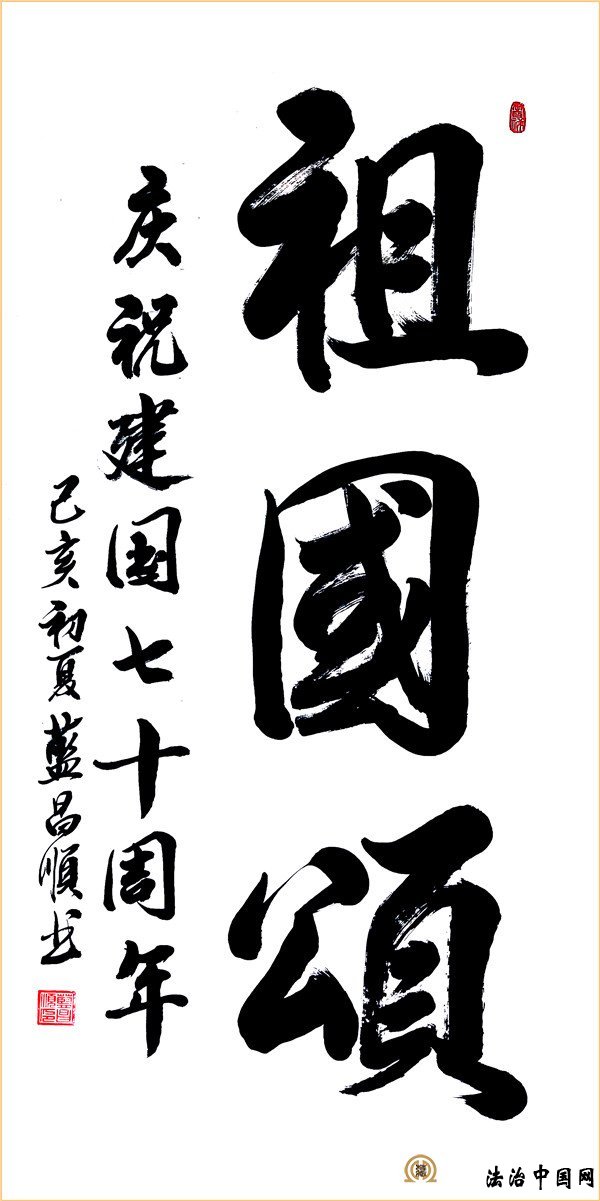 祖國頌
庆祝建国七十周年
己亥初夏藍昌順书
法治中国网